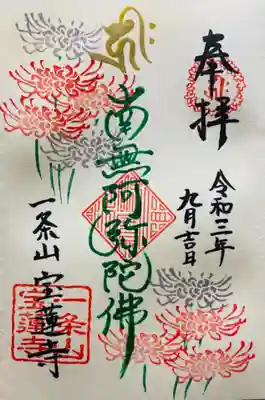 奉拝
令和三年
九月吉日
南無阿弥陀佛
一条山宝蓮寺
一条山
宝蓮寺